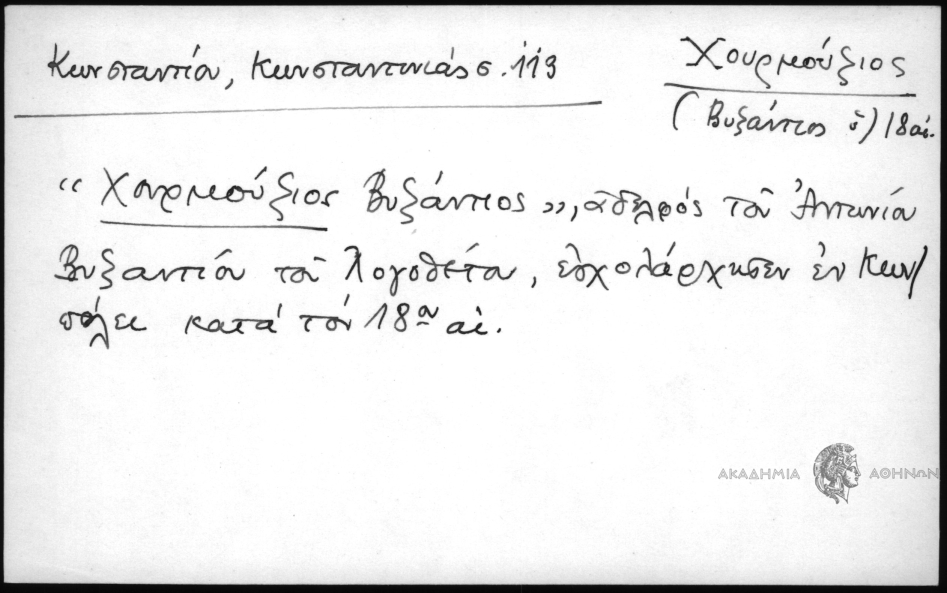 Κωνσταντίου, Κωνσταντινιάς σ. 113
Χουρμούζιος
(Βυζάντιος ὁ) 18 αἰ.
“ Χουρμούζιος Βυζάντιος ”, ἀδελφός τοῦ Ἀντωνίου
Βυζαντίου τοῦ Λογοθέτου, ἐσχολάρχησεν ἐν Κων/
πόλει κατά τόν 18ον αἰ.
ΑΚΑΔΗΜΙΑ ΑΘΗΝΩΝ